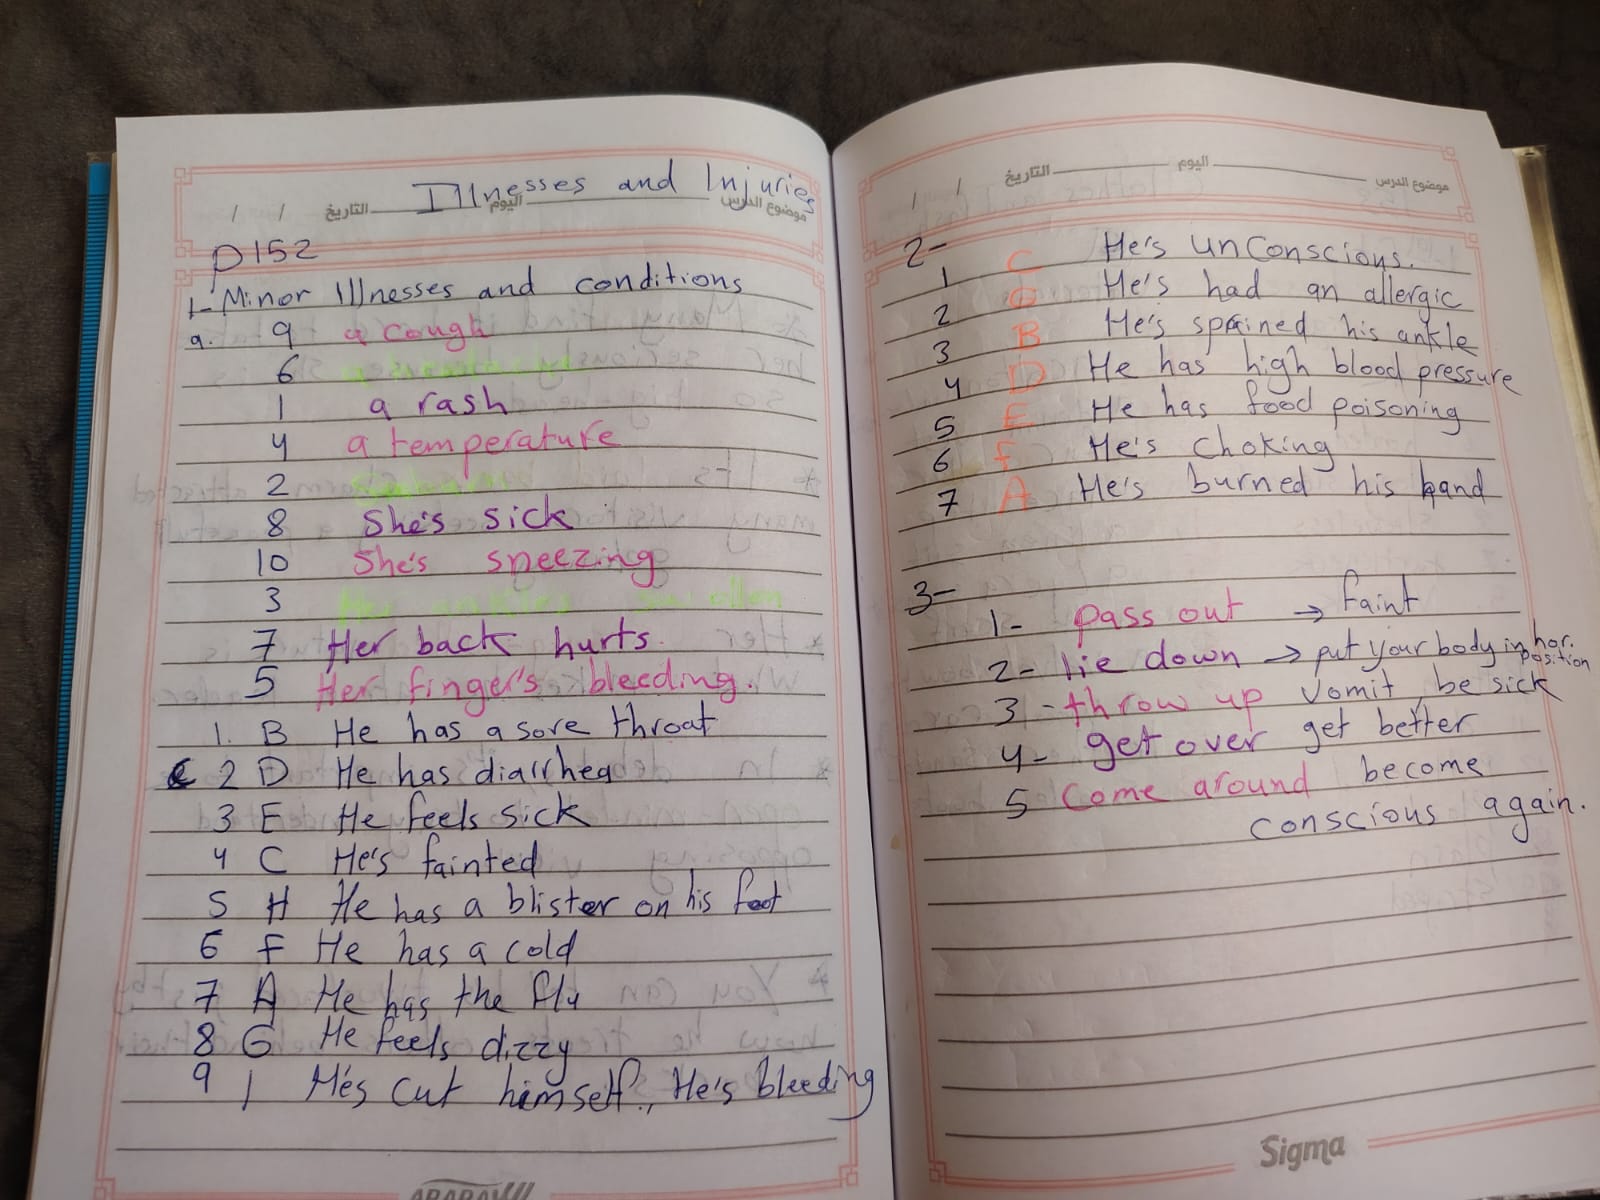 Illnesses and Injuries
/ / التاريخ اليوم موضوع الدرس
P152
1- Minor Illnesses and conditions
a. 9 a cough
6
1 a rash
4 a temperature
2
8 She's sick
10 She's sneezing
3 Her ankle's swollen
7 Her back hurts.
5 Her finger's bleeding.
1. B He has a sore throat
2 D He has diarrhea
3 E He feels sick
4 C He's fainted
5 H He has a blister on his foot
6 F He has a cold
7 A He has the flu
8 G He feels dizzy
9 I He's cut himself., He's bleeding
/ / التاريخ اليوم موضوع الدرس
2-
1 C He's unconscious.
2 G He's had an allergic
3 B He's sprained his ankle
4 D He has high blood pressure
5 E He has food poisoning
6 F He's choking
7 A He's burned his hand
3-
1- pass out → faint
2- lie down → put your body in hor. position
3- throw up vomit, be sick
4- get over get better
5 Come around become
conscious again.
Sigma